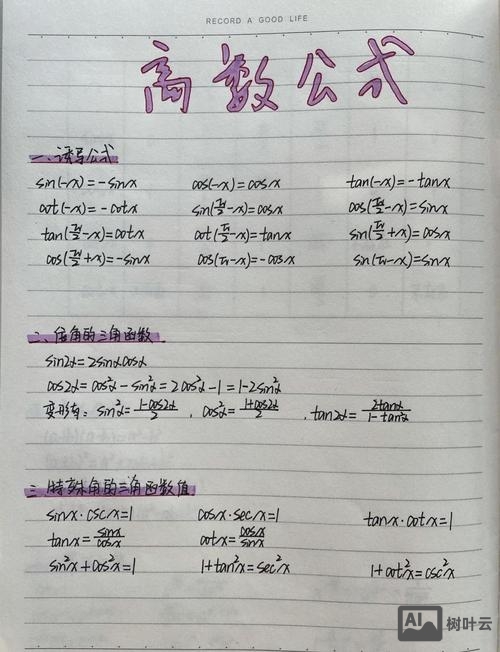 RECORD A GOOD LIFE
高数公式
一、诱导公式
sin(-x)=-sinx cos(-x)=cosx tan(-x)=-tanx
cot(-x)=-cotx sin(π/2-x)=cosx cos(π/2-x)=sinx
tan(π/2-x)=cotx cot(π/2-x)=tanx sin(π/2+x)=cosx
cos(π/2+x)=-sinx cos(π-x)=-cosx sin(π-x)=sinx
二、倍角的三角函数
sin2α=2sinαcosα
cos2α=cos²α-sin²α=2cos²α-1=1-2sin²α
变形有：sin²α=(1-cos2α)/2 , cos²α=(1+cos2α)/2 , tan2α=2tanα/(1-tan²α)
三、特殊角的三角函数值
sinx·cscx=1 cosx·secx=1 tanx·cotx=1
tanx=sinx/cosx cotx=cosx/sinx
sin²x+cos²x=1 1+tan²x=sec²x 1+cot²x=csc²x
AI 树叶云